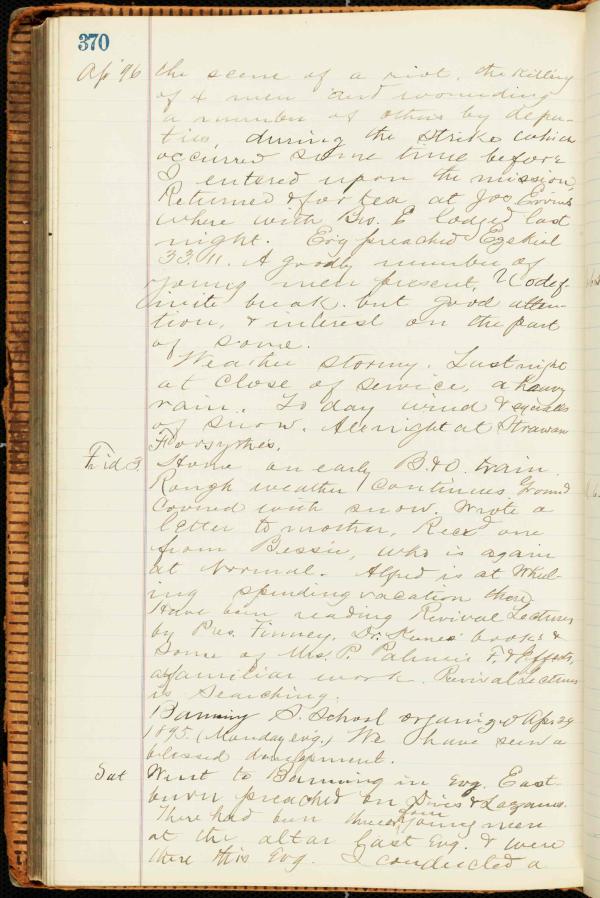 370
Ap '96 the scene of a riot, the killing
of 4 men and wounding
a number of others by depu-
ties, during the strike which
occurred some time before
I entered upon the mission,
Returned & for tea at Jos
where with Bro. E lodged last
night. Evg preached Ezekiel
33.11. A goodly number of
young men present, No def-
inite break. but good atten-
tion, & interest on the part
of some.
Weather stormy. Last night
at close of service, a heavy
rain. To day wind & squalls
of snow. All night at Strawan
Forsythes.
Frid 3. Home on early B&O. train.
Rough weather continues. Ground
covered with snow. Wrote a
letter to mother, Recd one
from Bessie, who is again
at Normal. Alfred is at Wheel-
ing spending vacation there.
Have been reading Revival Lectures
by Pres. Finney, Dr. books &
some of Mrs. P. Palmer's F. & Effects,
a familiar work. Revival Lectures
is searching.
Banning S. School organized Apr 29
1895. (Monday evg.) We have seen a
blessed development.
Sat Went to Banning in Evg. East-
burn preached on Dives & Lazarus.
There had been three or four young men
at the altar last Evg. & were
there this Evg. I conducted a